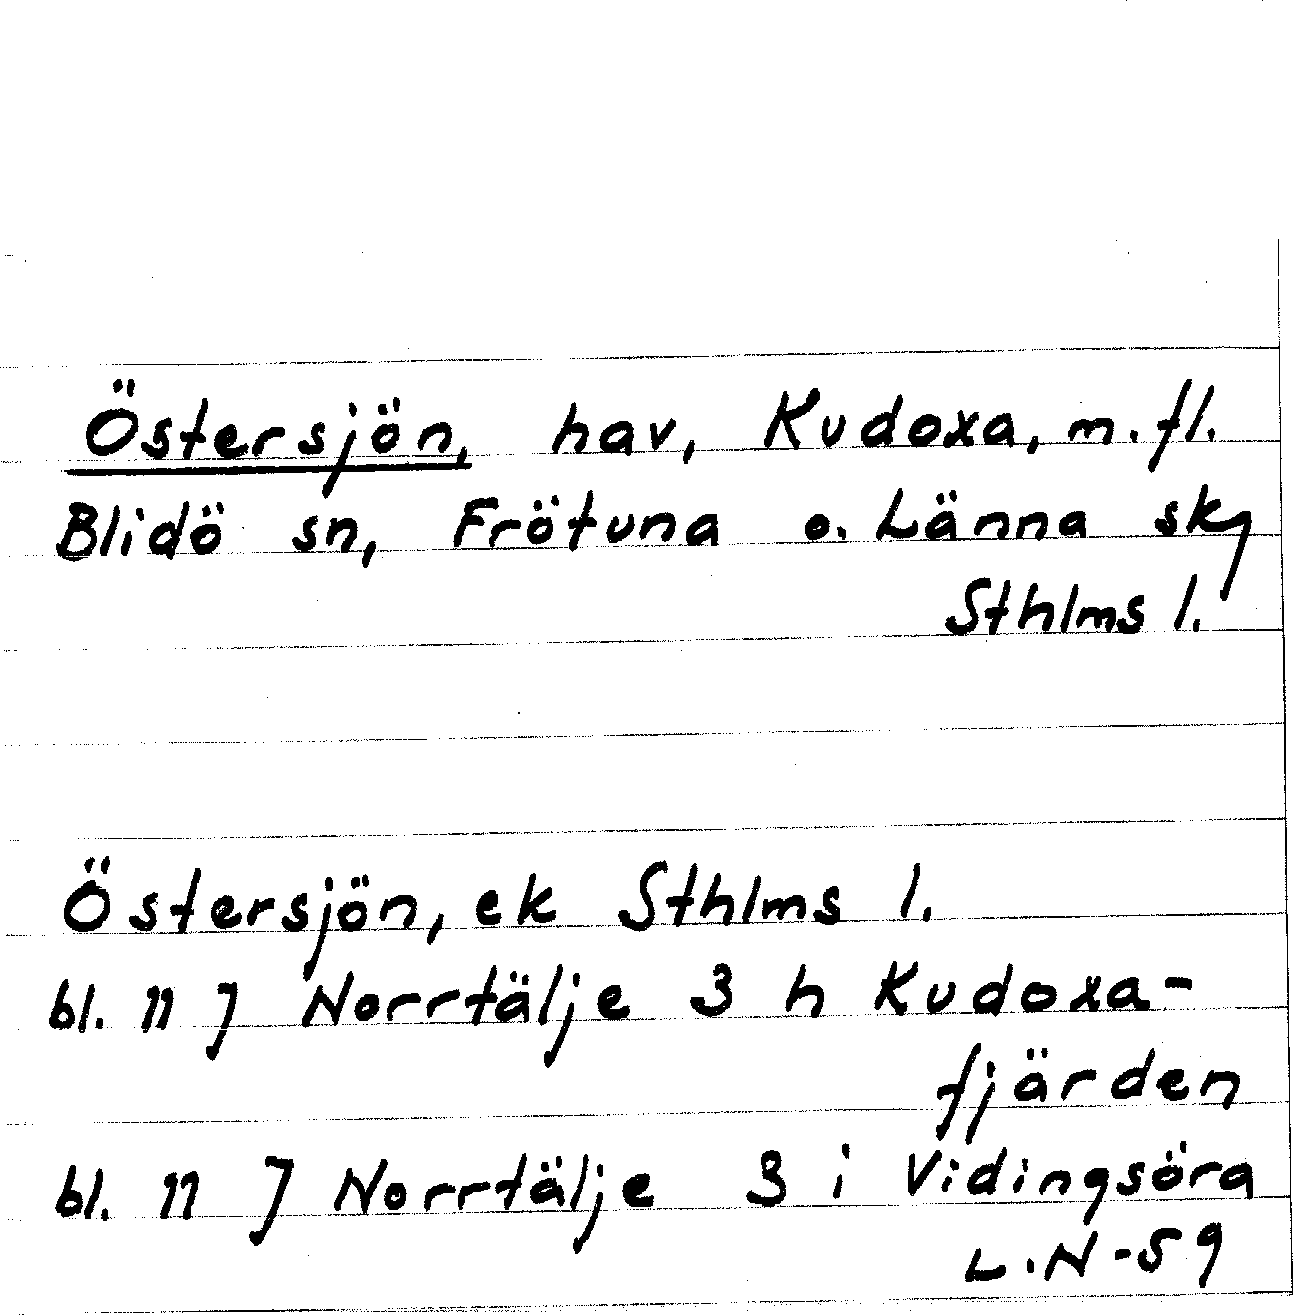 Östersjön, hav, Kudoxa, m.fl.
Blidö sn, Frötuna o. Länna sk,
Sthlms l.
Östersjön, ek Sthlms l.
bl. 11 J Norrtälje 3 h Kudoxa-
fjärden
bl. 11 J Norrtälje 3 i Vidingsöra
L.N-59